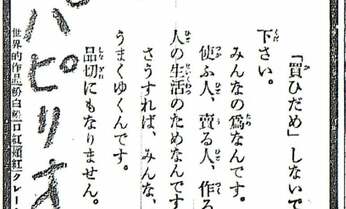 「買ひだめ」しないで
下さい。
みんなの爲なんです。
使ふ人、賣る人、作る
人の生活のためなんです
さうすれば、みんな、
うまくゆくんです。
品切にもなりません。
パピリオ
世界的作品粉白粉口紅頬紅クレー